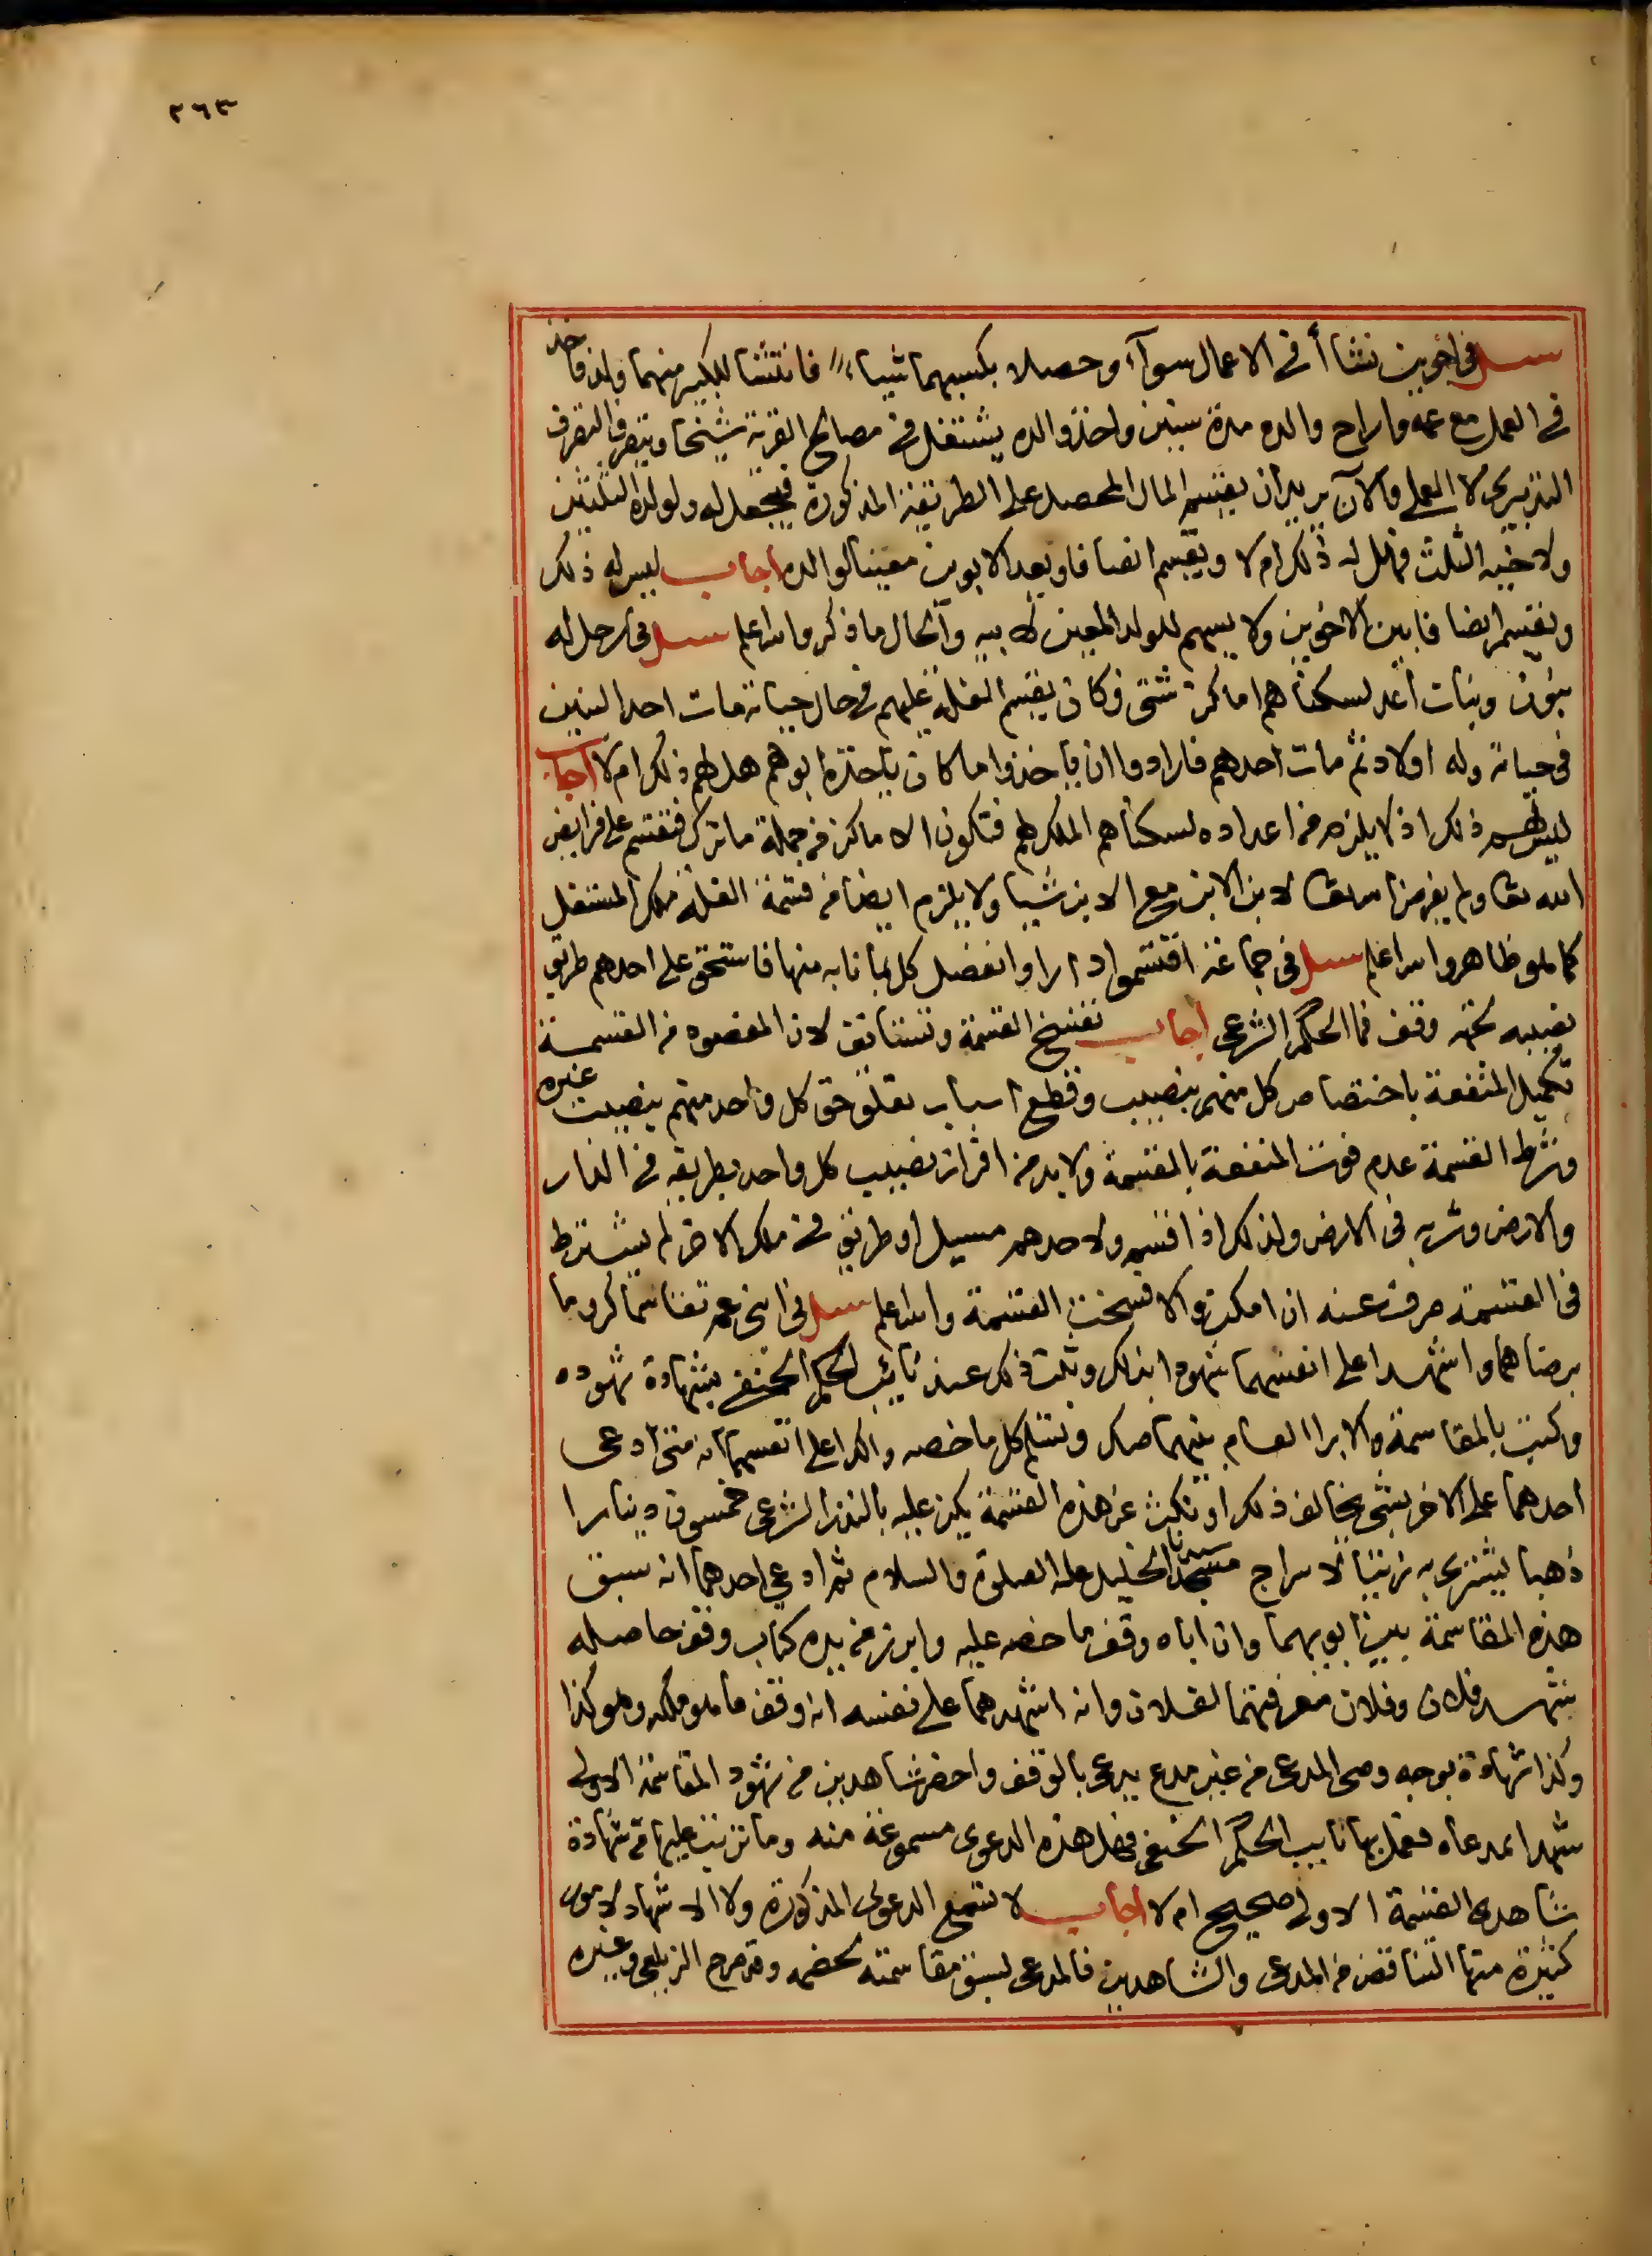 ٢٦٣
سئل في اخوين نشاأ في الاعمال سوآء وحصلا بكسبهما شيا فانتشا للكبير منهما ولد فاخذ
في العمل مع عمه واراح والده مدة سنين واخذ والده يشتغل في مصالح القرية شيخا ويتصرف التصرف
التدبيري لا العملي والآن يريدان يقتسم المال المحصل على الطريقة المذكورة فيجعل له ولولده الثلثين
ولاخيه الثلث فهل له ذلك ام لا ويقسم انصافا ويعد الابن معينا لوالده اجاب ليس له ذلك
ويقسم انصافا بين الاخوين ولا يسهم للولد المعين لابيه والحال ما ذكر والله اعلم سئل في رجل له
بنون وبنات اعد لسكناهم اماكن شتى وكان يقسم الغلة عليهم في حال حياته مات احد البنين
في حياته وله اولاد ثم مات احدهم فارادوا ان ياخذوا ما كان ياخذه ابوهم هل لهم ذلك ام لا اجاب
ليس لهم ذلك اذ لا يلزم من اعداده لسكناهم الملك لهم فتكون الاماكن من جملة ما ترك فتقسم على فرايض
الله تعا ولم يفرض الله تعا لابن الابن مع الابن شيا ولا يلزم ايضا من قسمة الغلة ملك المستغل
كما هو ظاهر والله اعلم سئل في جماعة اقتسموا دارا وانفصل كل بما نابه منها فاستحق على احدهم طريق
نصيبه بجهة وقف فما الحكم الشرعي اجاب تفسخ القسمة وتستانف لان المقصود من القسمة
تكميل المنفعة باختصاص كل منهم بنصيب وقطع اسباب تعلق حق كل واحد منهم بنصيب غيره
وشرط القسمة عدم فوت المنفعة بالقسمة ولا بد من افراز نصيب كل واحد بطريقه في الدار
والارض وشربه في الارض ولذلك اذا قسم ولاحدهم مسيل او طريق في ملك الاخر لم يشترط
في القسمة صرف عنه ان امكن والا فسخت القسمة والله اعلم سئل في ابني عم تقاسما كروما
برضاهما واشهدا على انفسهما شهودا بذلك وثبت ذلك عند نائب الحكم الحنفي بشهادة شهوده
وكتب بالمقاسمة والابرا العام بينهما صك وتسلم كل ما خصه واكدا على انفسهما انه متى ادعى
احدهما على الاخر بشي يخالف ذلك او نكث عن هذه القسمة يكن عليه بالنذر الشرعي خمسون دينارا
ذهبا يشتري به زيتا لاسراج مسجد سيدنا الخليل عليه الصلوة والسلام ثم ادعى احدهما انه سبق
هذه المقاسمة بين ابويهما وان اباه وقف ما خصه عليه وابرز من يده كتاب وقف حاصله
شهد فلان وفلان معرفتهما لفلان وانه اشهدهما على نفسه انه وقف ما هو ملكه وهو كذا
وكذا شهادة بوجه وصى المدعى من غير مدع يدعى بالوقف واحضر شاهدين من شهود المقاسمة الاولى
شهدا بمدعاه فعمل بها نايب الحكم الحنفي فهل هذه الدعوى مسموعة منه وما ترتب عليها من شهادة
شاهدي القسمة الاولى صحيح ام لا اجاب لا تسمع الدعوى المذكورة ولا الاشهاد لامور
كثيرة منها التناقض من المدعى والشاهدين فالمدعى لسبق مقاسمته لخصمه وقد صرح الزيلعي وغيره